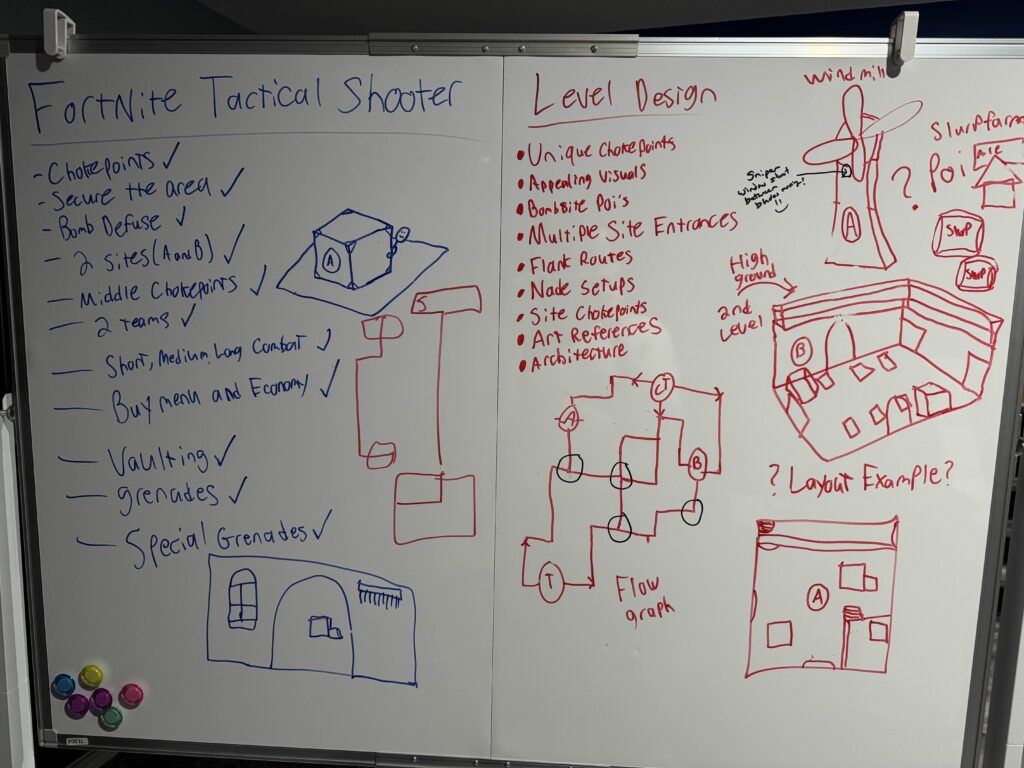 FortNite Tactical Shooter
- Chokepoints ✓
- Secure the area ✓
- Bomb Defuse ✓
- 2 Sites (A and B) ✓
- Middle Chokepoints ✓
- 2 teams ✓
- Short, Medium, Long Combat ✓
- Buy menu and Economy ✓
- Vaulting ✓
- grenades ✓
- Special Grenades ✓
A
S
Level Design
• Unique Chokepoints
• Appealing Visuals
• BombSite Poi's
• Multiple Site Entrances
• Flank Routes
• Node Setups
• Site Chokepoints
• Art References
• Architecture
Windmill
Sniper
window shot
between
A
?
Slurpfarm
Poi
Slurp
Slurp
High
ground
2nd
Level
B
A
CT
B
T
Flow
graph
? Layout Example?
A